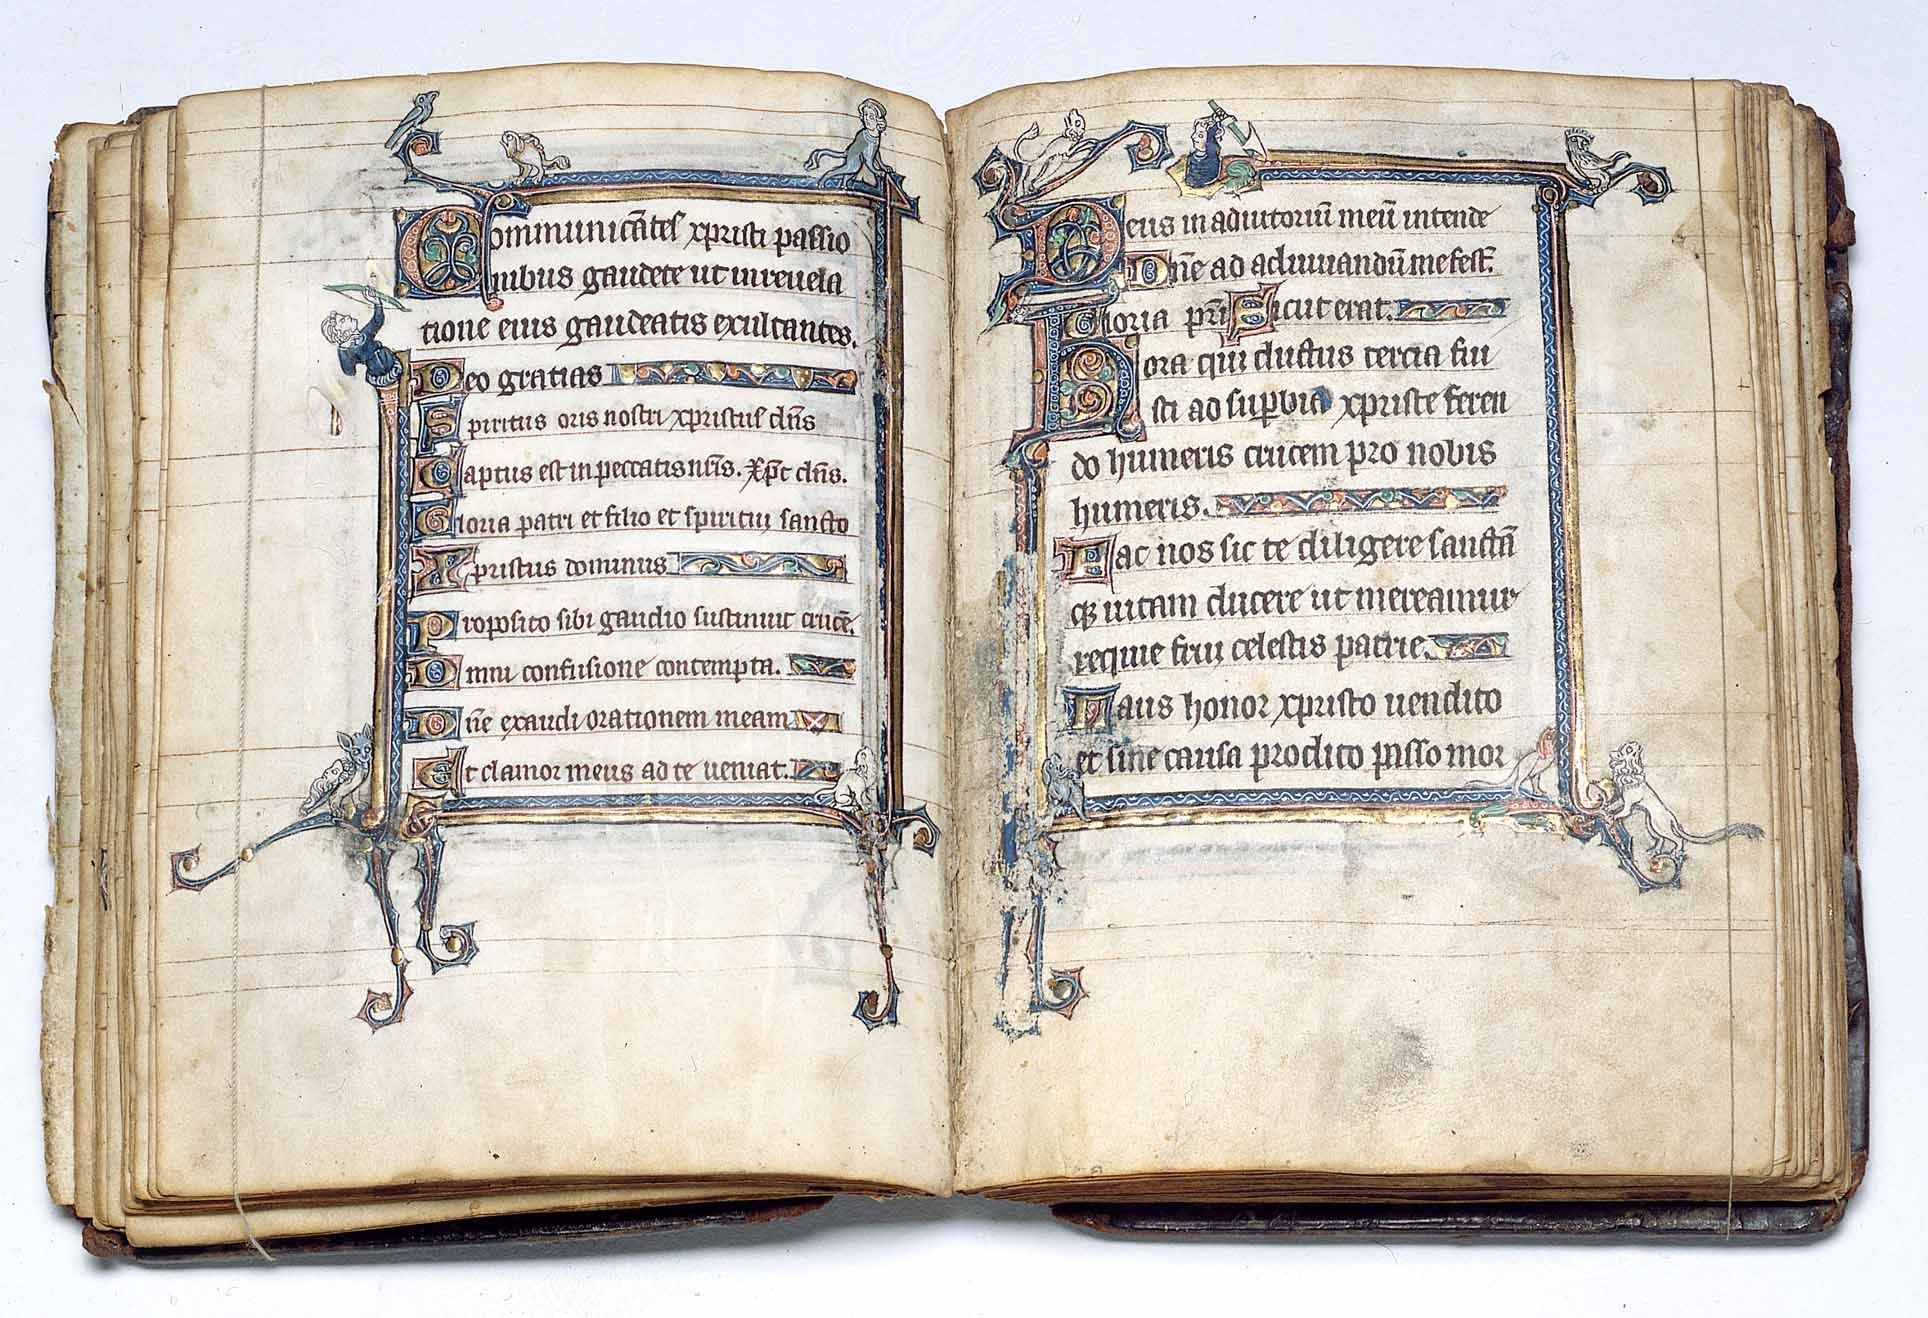 Communica̅tes xpristi passio
nibus gaudete ut in reuela
tione eius gaudeatis exultantes.
Deo gratias
Spiritus oris nostri xpristus dn̅s
Captus est in peccatis nr̅is. Xp̅c dn̅s.
Gloria patri et filio et spiritui sancto
Xpristus dominus
Proposito sibi gaudio sustinuit cruce̅.
Omni confusione contempta.
Dn̅e exaudi orationem meam
Et clamor meus ad te ueniat.
Deus in adiutoriu̅ meu̅ intende
Dn̅e ad adiuuandu̅ me fest̅.
Gloria pr̅i Sicut erat.
Hora qui ductus tercia fui
sti ad sup̲bia xpriste feren
do humeris crucem pro nobis
humeris.
Fac nos sic te diligere sancta̅
qꝫ uitam ducere ut mereamur
requie frui celestis patrie.
Laus honor xpristo uendito
et sine causa prodito passo mor